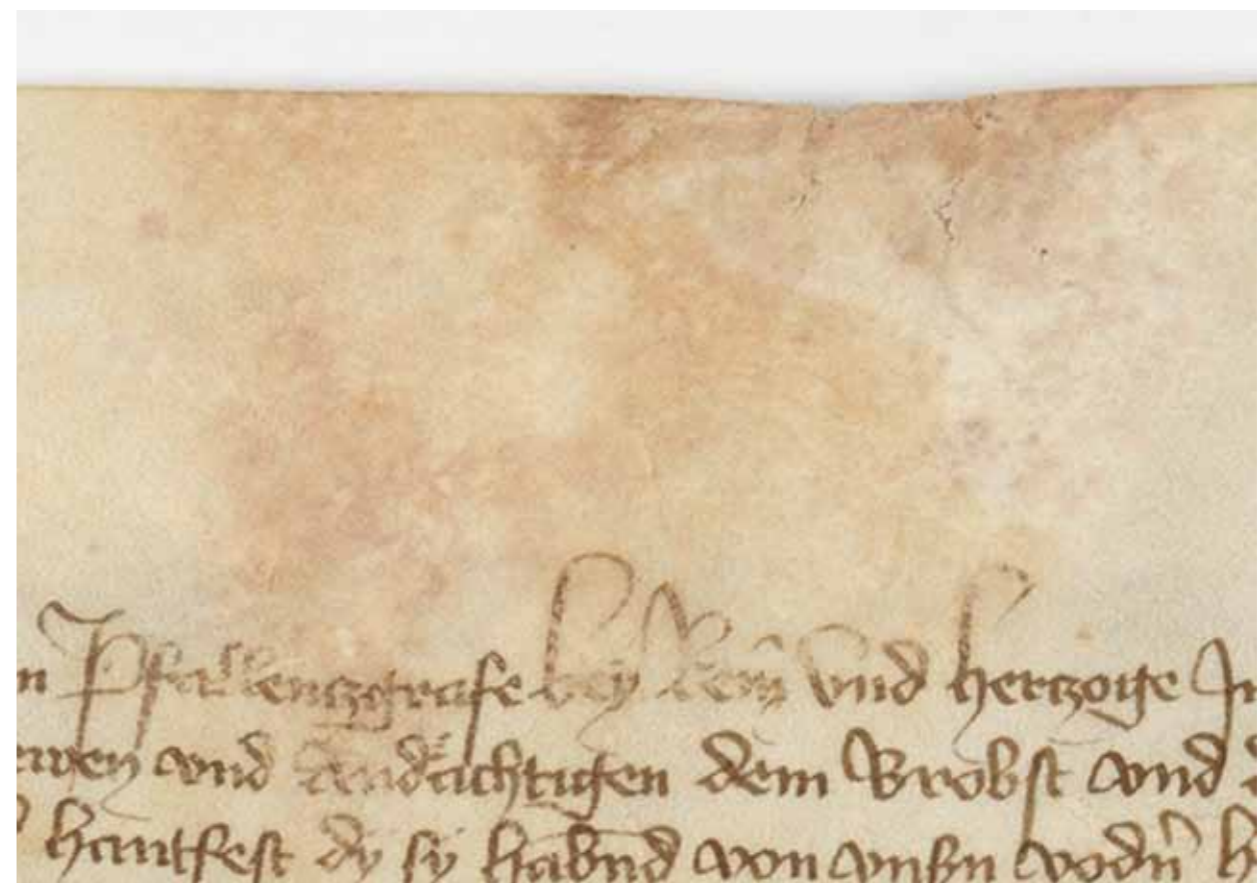 n Pfallenczgrafe bey Rein vnd hertzoge In
erwen vnd Andächtigen dem Brobst vnd d
hantfest dy sy habnd von vnsn vodn̄ h